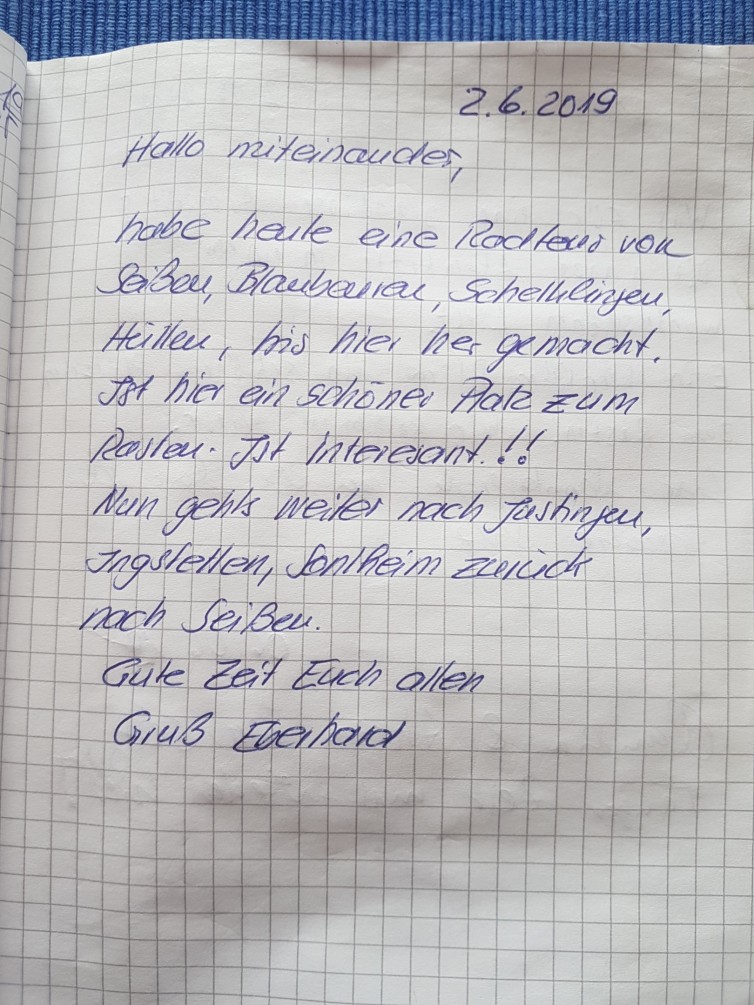 2.6.2019
Hallo miteinander,
habe heute eine Radtour von
Seißen, Blaubeuren, Schelklingen,
Hütten, bis hier her gemacht.
Ist hier ein schöner Platz zum
Rasten. Ist interesant.!!
Nun gehts weiter nach Justingen,
Ingstetten, Sontheim zurück
nach Seißen.
Gute Zeit Euch allen
Gruß Eberhard